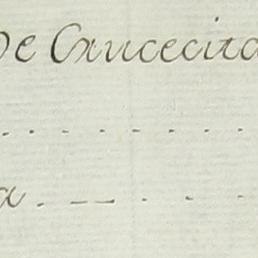 De Crucecita
. . . . . . . . .
a . — . . .